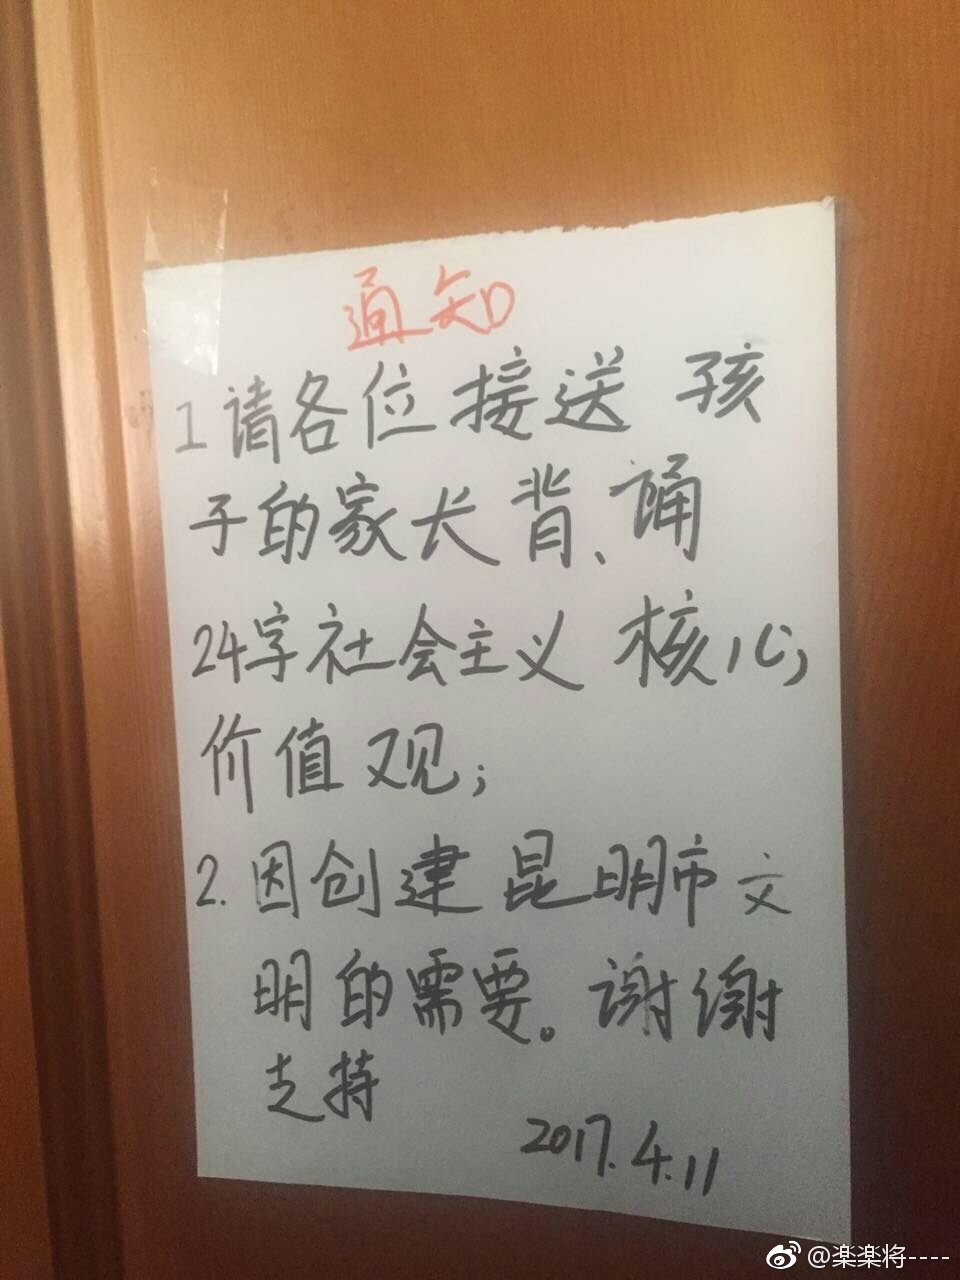 通知
1 请各位接送孩
子的家长背、诵
24字社会主义核心
价值观;
2.因创建昆明市文
明的需要。谢谢
支持
2017.4.11
@楽楽将----